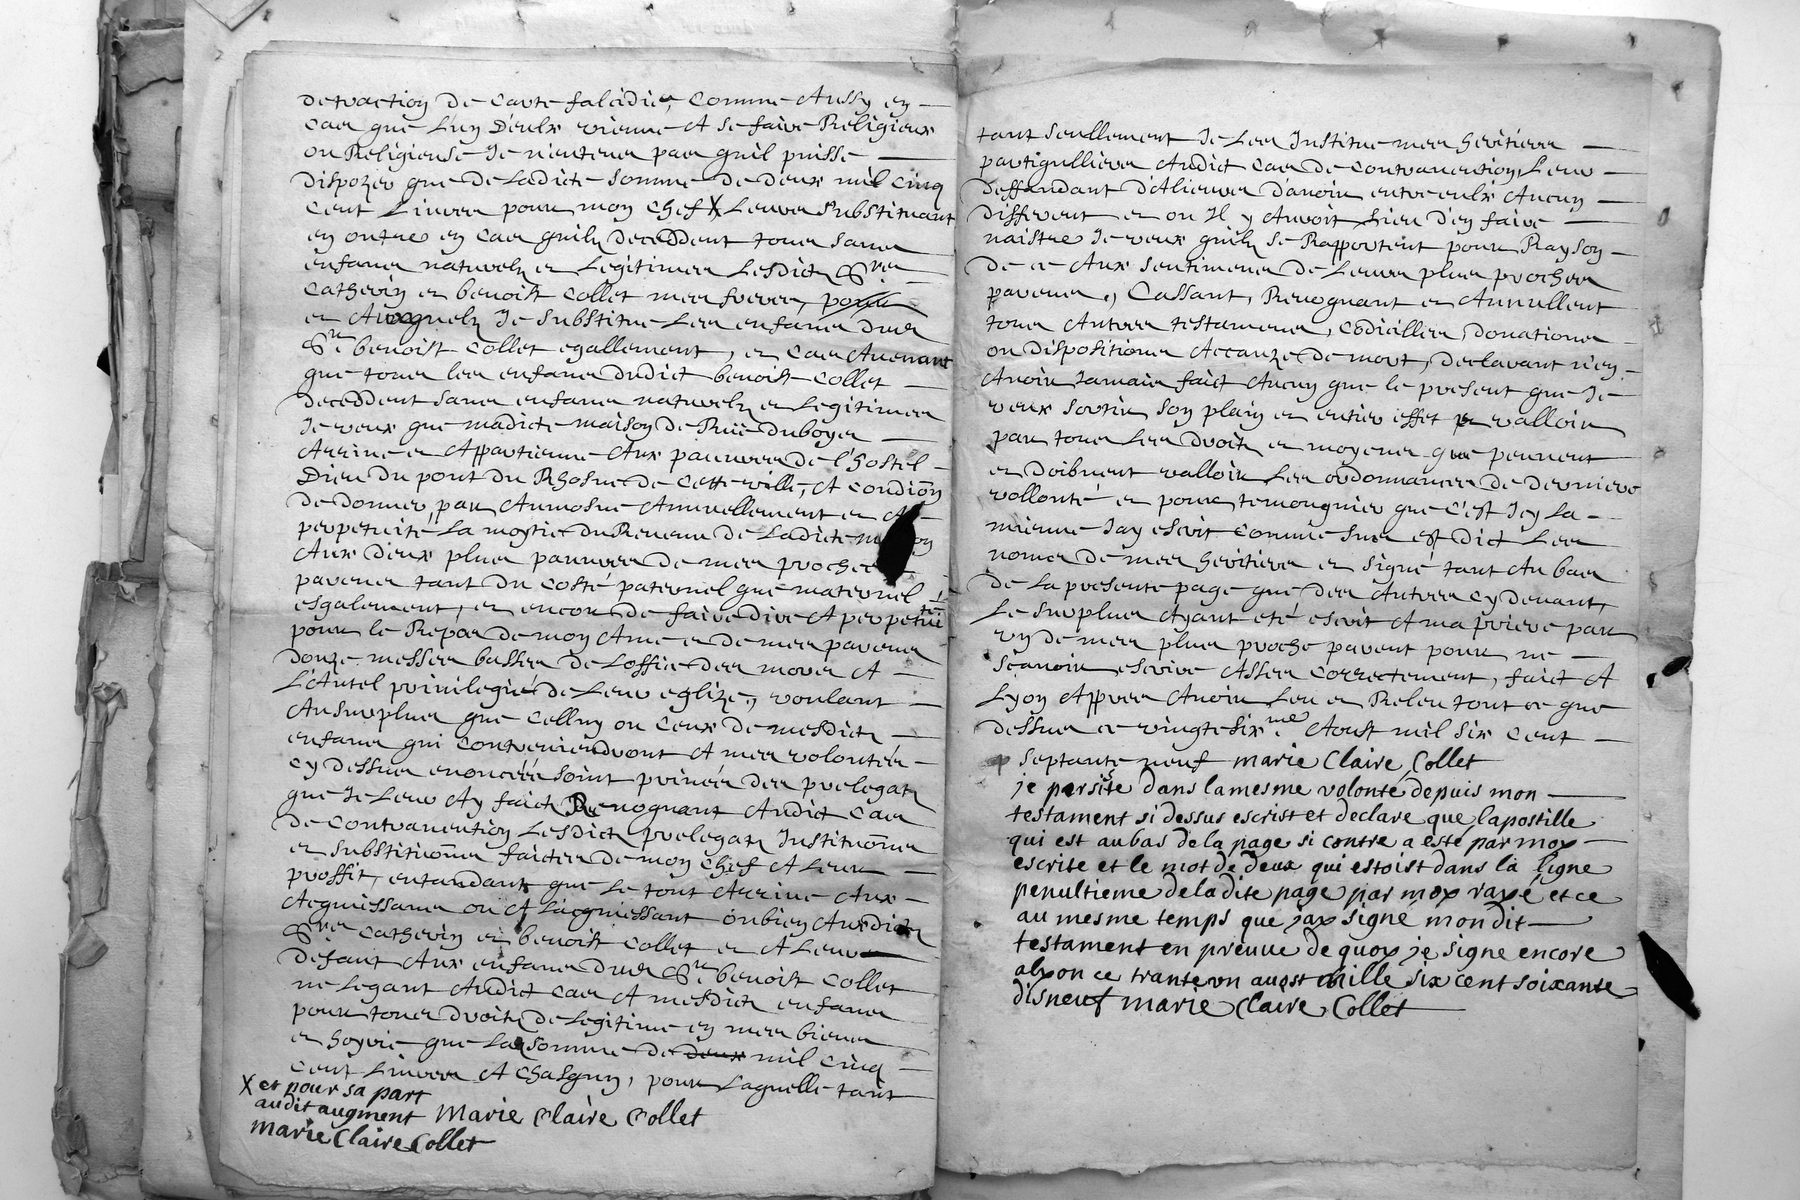 detraction de carte falcidie, Comme Aussy en
cas que L'un D'eulx vienne A se faire Religieux
ou Religieuse Je n'entens pas quil puisse
dispozer que de Ladicte somme de deux mil cinq
cent Livres pour mon chef X Leurs substituant
en outre en cas quilz deceddent tous sans
enfans naturelz et Legitimes Lesdictz Srs
Catherin et benoist Collet mes freres, pour
et Auxquelz Je substitue Les enfans dud
Sr benoist Collet egallement, et cas Avenant
que tous les enfans dudict benoist Collet
deceddent sans enfans naturelz et Legitimes
Je veux que madicte maison de Ruë Duboyer
Arrive et Appartienne Aux pauvres de l'hostel
Dieu du pont du Rhosne de Cette ville, A condiōn
de donner par Aumosne Annuellement et A
perpetuité La moytie du Revenu de Ladicte
Aux deux plus pauvres de mes proches
parens tant du costé paternel que maternel
esgalement, et encor de faire dire A perpetuité
pour le Repos de mon Ame et de mes parens
douze messes basses de L'office des mors A
L'Autel privilegié de Leur eglize, voulant
Ausurplus que Celluy ou Ceux de mesdictz
enfans qui Contreviendront A mes volontés
cy dessus enoncéés soint privés des prelegatz
que Je Leur Ay faictz Revoquant Audict Cas
de Contravention Lesdictz prelegatz Instituōns
et substituōns faictes de mon Chef A Leur
proffit, entandant que Le tout Arrive Aux
Acquissans ou A L'acquiessant oubien Ausdictz
Srs Catherin et benoist Collet et A Leur
defaut Aux enfans dud Sr benoist Collet
ne Legant Audict Cas A mesdictz enfans
pour tous droitz de Legitime en mes biens
et hoyrie que La somme de deux mil cinq
cent Livres A Chascun, pour Laquelle tant
X et pour sa part
audit augment Marie Claire Collet
marie Claire Collet
tant seullement Je Les Institue mes heritiers
partigulliers Audict Cas de Contravention, Leur
deffandant d'Alieurs d'avoir entre eulx Aucun
different et ou Il y Auroit Lieu d'en faire
naistre Je veux quilz se Rapportent pour Rayson
de ce Aux sentimens de Leurs plus proches
parens, Cassant, Revoquant et Annullent
tous Autres testamens, codicilles, Donations
ou dispositions Accauze de mort, declarant n'en
Avoir Jamais faict Aucun que le present que Je
veux sortir son plain et entier effet et valloir
par tous Les droitz et moyens que peuvent
et doibvent valloir Les ordonnances de derniere
vollonté et pour temougnier que C'est Icy La
mienne Jay escrit Comme sus est dict Les
noms de mes heritiers et signé tant Au bas
de La presente page que des Autres cy devant,
Le surplus Ayant eté escrit A ma priere par
un de mes plus proche parent pour ne
sçavoir escrire Asses correctement, faict A
Lyon Appres Avoir Leu et Releu tout ce que
dessus ce vingtesixme Aoust mil six cent
septante neuf marie Claire Collet
je persiste dans lamesme volonté depuis mon
testament si dessus escrist et declare que lapostille
qui est aubas dela page si contre a esté par moy
escrite et le mot de deux qui estoist dans la ligne
penultieme deladite page par moy rayé et ce
au mesme temps que jay signe mondit
testament en preuue de quoy je signe encore
alyon ce trante un aoust mille six cent soixante
disneuf marie Claire Collet